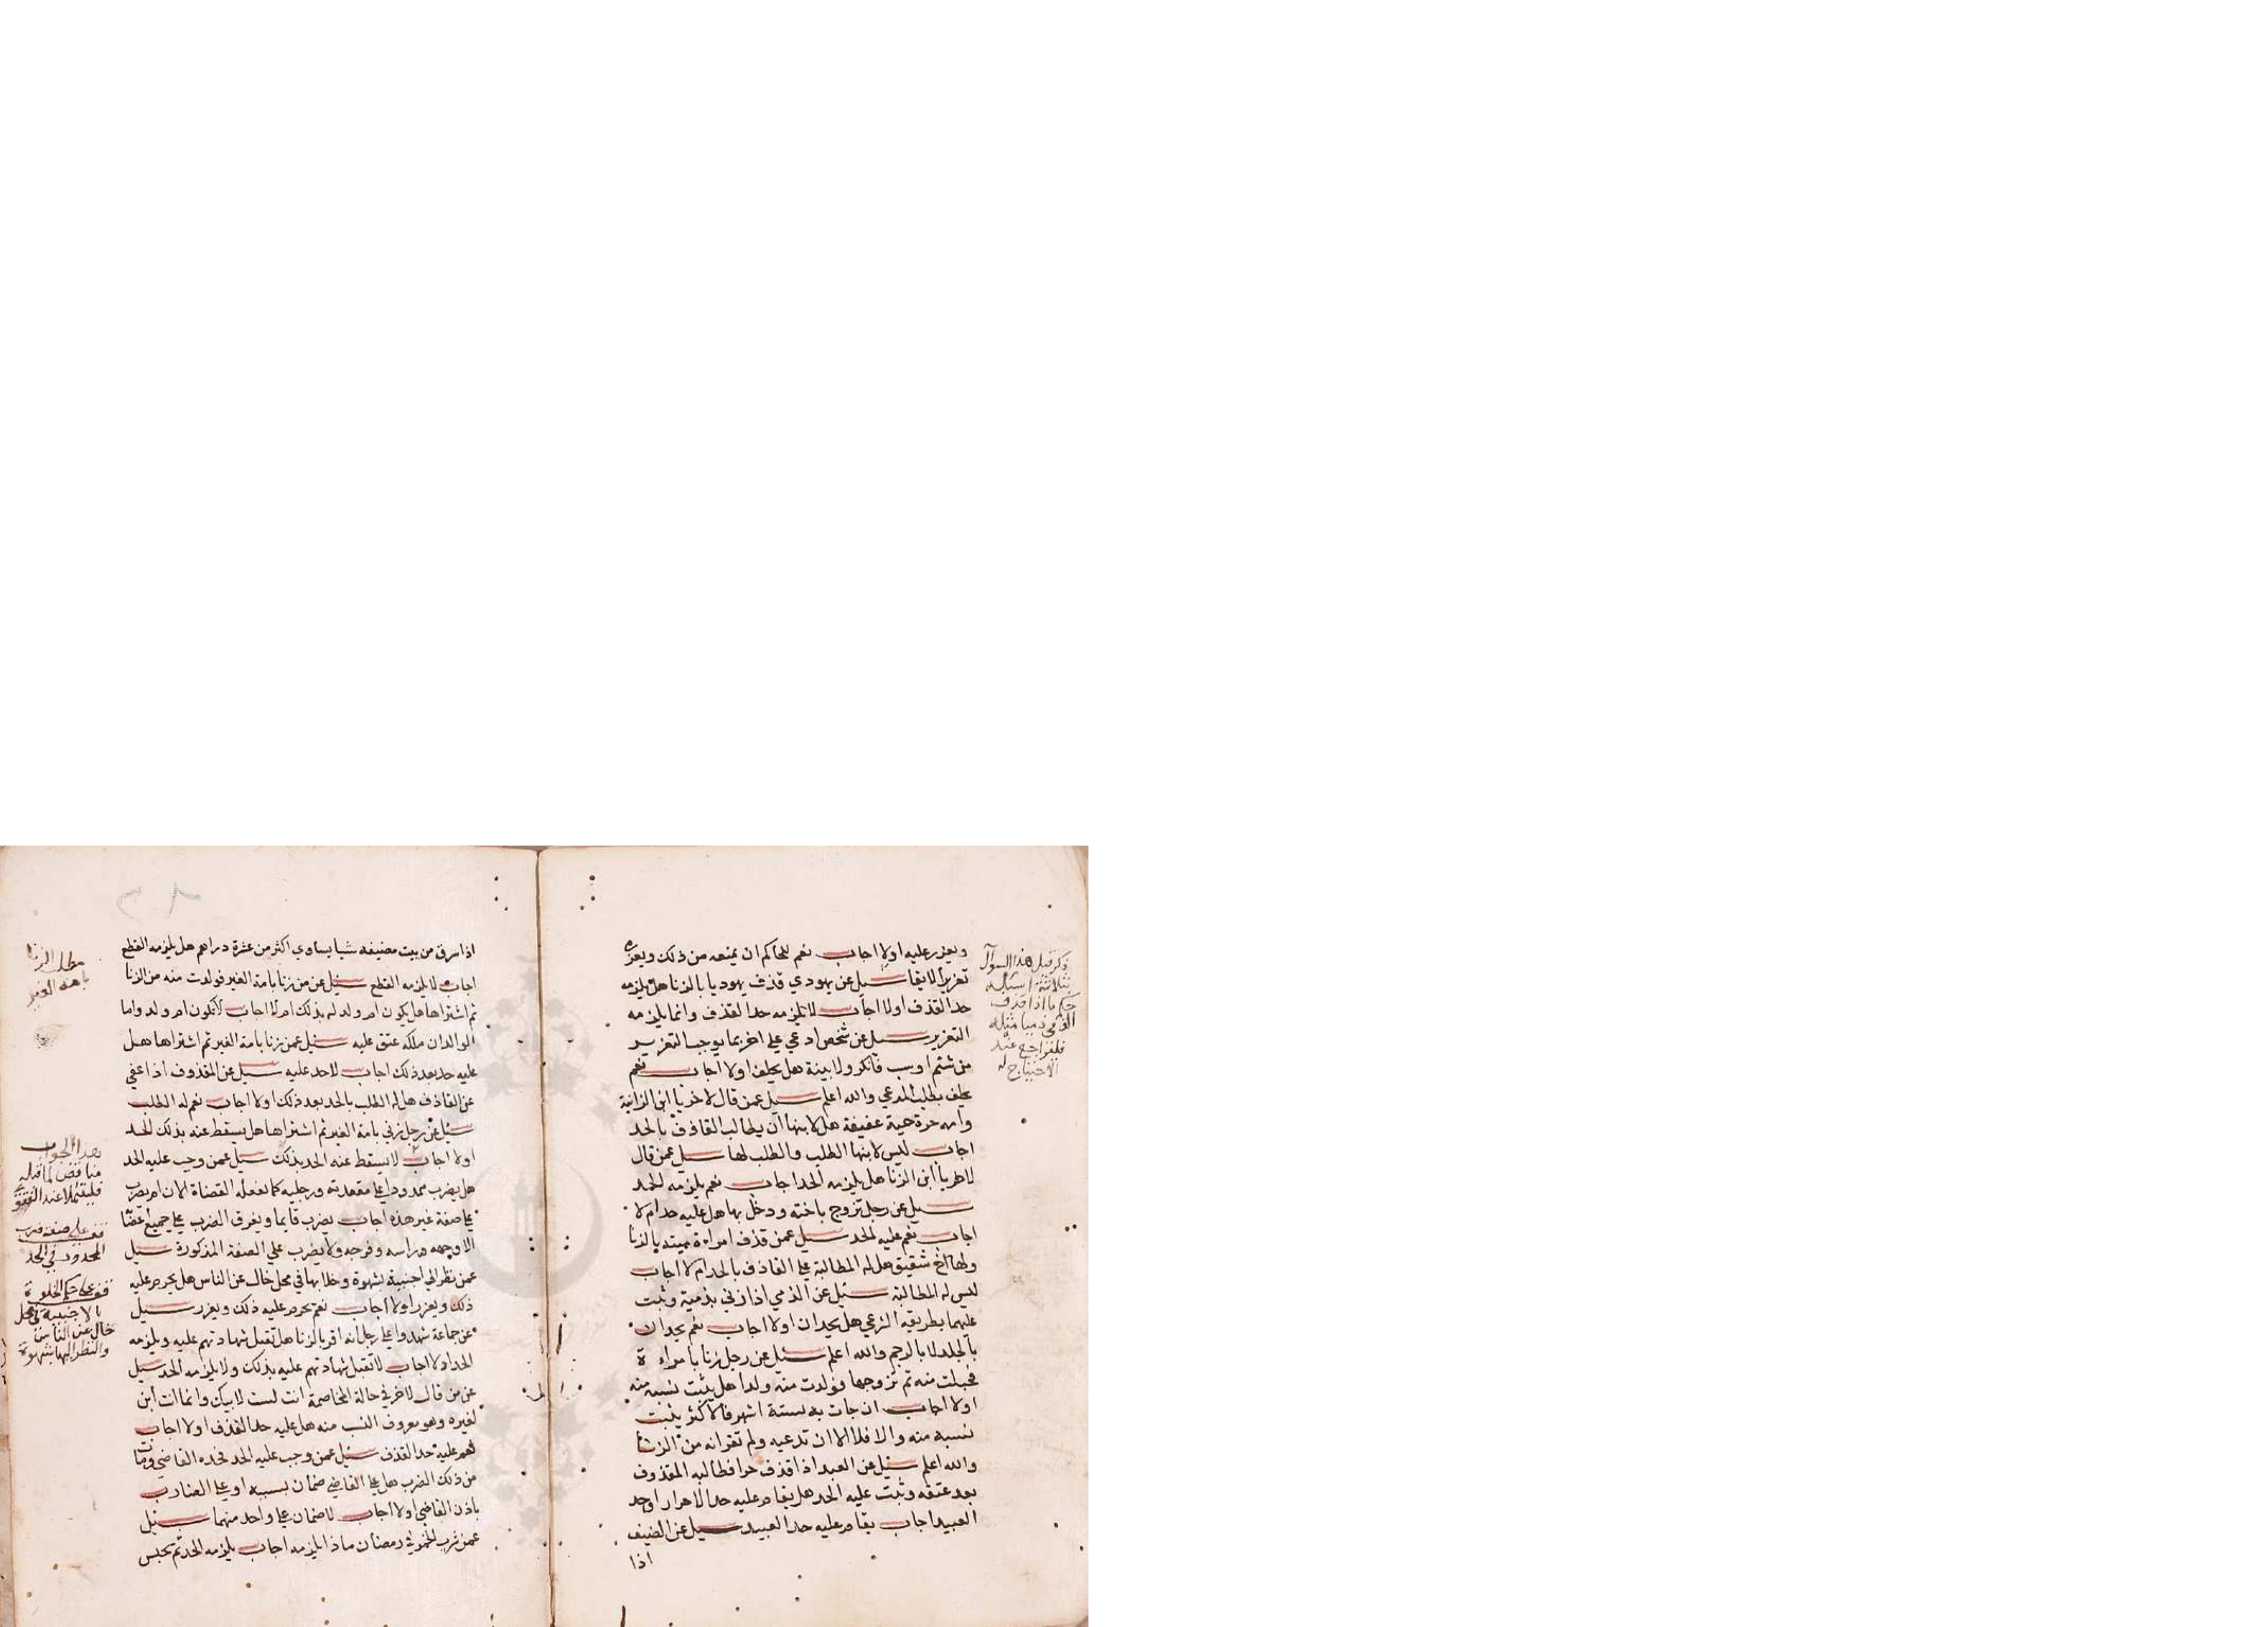 ويعزر عليه اولا اجاب نعم للحاكم ان يمنعه من ذلك ويعزره
تعزيرا لايقا سيل عن يهودي قذف يهوديا بالزنا هل يلزمه
حد القذف اولا اجاب لا يلزمه حد القذف وانما يلزمه
التعزير سيل عن شخص ادعي علي اخر بما يوجب التعزير
من شتم او سب فانكر ولا بينة هل يحلف اولا اجاب نعم
يحلف بطلب المدعي والله اعلم سيل عمن قال لاخر يا ابن الزانية
وامه حرة حية عفيفة هل لابنها ان يطالب القاذف بالحد
اجاب ليس لابنها الطلب والطلب لها سيل عمن قال
لاخر يا ابن الزنا هل يلزمه الحد اجاب نعم يلزمه الحد
سيل عن رجل تزوج باخته ودخل بها هل عليه حد ام لا
اجاب نعم عليه الحد سيل عمن قذف امراءة ميتة بالزنا
ولها اخ شقيق هل له المطالبة علي القاذف بالحد ام لا اجاب
ليس له المطالبة سئيل عن الذمي اذا زني بذمية وثبت
عليهما بطريقه الشرعي هل يحدان اولا اجاب نعم يحدان
بالجلد لا بالرجم والله اعلم سئيل عن رجل زنا بامراءة
فحبلت منه ثم تزوجها فولدت منه ولدا هل يثبت نسبه منه
اولا اجاب ان جات به لستة اشهر فاكثر يثبت
نسبه منه والا فلا الا ان تدعيه ولم تقر انه من الزنا
والله اعلم سئيل عن العبد اذا قذف حرا فطالبه المقذوف
بعد عتقه وثبت عليه الحد هل يقام عليه حد الاحرار او حد
العبيد اجاب يقام عليه حد العبيد سيل عن الضيف
اذا
ذكر قبل هذا السوال
بثلاثة اسئله
حكم ما اذا قذف
الذمي ذميا مثله
فليراجع عند
الاحتياج له
اذا سرق من بيت مضيفه شيا يساوي اكثر من عشرة دراهم هل يلزمه القطع
اجاب لا يلزمه القطع سئيل عن من زنا بامة الغير فولدت منه من الزنا
ثم اشتراها هل يكون ام ولد له بذلك ام لا اجاب لا تكون ام ولد واما
الولد ان ملكه عتق عليه سئيل عمن زنا بامة الغير ثم اشتراها هل
عليه حد بعد ذلك اجاب لا حد عليه سيل عن المقذوف اذا عفي
عن القاذف هل له الطلب بالحد بعد ذلك اولا اجاب نعم له الطلب
سئيل عن رجل زني بامة الغير ثم اشتراها هل يسقط عنه بذلك الحد
اولا اجاب لا يسقط عنه الحد بذلك سيل عمن وجب عليه الحد
هل يضرب ممدودا علي مقعدته ورجليه كما تفعله القضاة الان ام يضرب
علي صفة غير هذه اجاب يضرب قايما ويفرق الضرب علي جميع اعضا
الا وجهه وراسه وفرجه ولا يضرب علي الصفة المذكورة سيل
عمن نظر الي اجنبية لشهوة وخلا بها في محل خال عن الناس هل يحرم عليه
ذلك ويعزر اولا اجاب نعم يحرم عليه ذلك ويعزر سيل
عن جماعة شهدوا علي رجل انه اقر بالزنا هل تقبل شهادتهم عليه ويلزمه
الحد اولا اجاب لا تقبل شهادتهم عليه بذلك ولا يلزمه الحد سيل
عن من قال لاخر في حالة المخاصمة انت لست لابيك وانما انت ابن
لغيره وهو معروف النسب منه هل عليه حد القذف اولا اجاب
نعم عليه حد القذف سئيل عمن وجب عليه الحد فحده القاضي ومات
من ذلك الضرب هل علي القاضي ضمان بسببه او علي الضارب
باذن القاضي اولا اجاب لا ضمان علي واحد منهما سئيل
عمن شرب الخمر في رمضان ماذا يلزمه اجاب يلزمه الحد ثم يحبس
مطلب الزنا
بامة الغير
هذا الجواب
مناقض لما قبله
فليتامل عند الفتوى
قف علي صفة ضرب
المحدود في الحد
قف علي حكم الخلوة
بالاجنبية في محل
خال عن الناس
والنظر اليها بشهوة